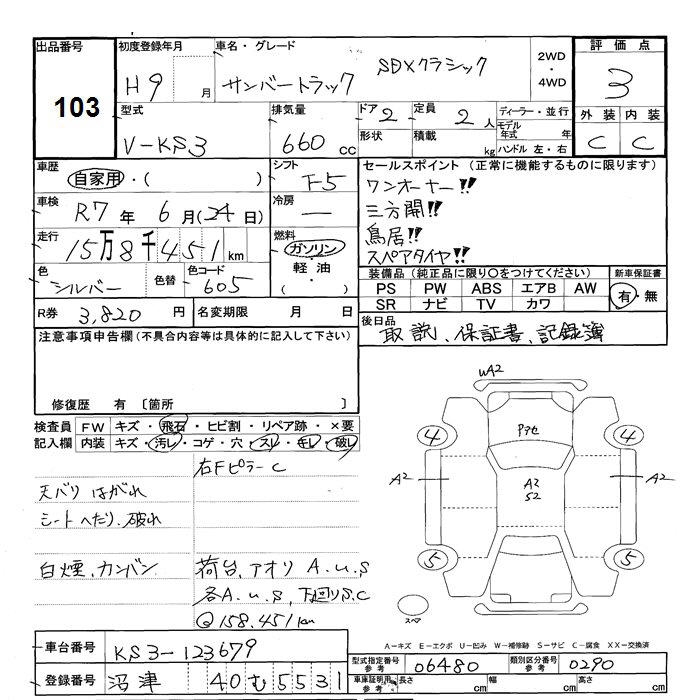 出品番号 初度登録年月 車名・グレード 2WD ・ 4WD 評価点
103 H9 月 サンバートラック SDXクラシック 3
型式 排気量 ドア 定員 ディーラー・並行 外装 内装
V-KS3 660 cc 2 2 人 モデル年式 年 C C
形状 積載 kg ハンドル 左・右
車歴 シフト セールスポイント (正常に機能するものに限ります)
自家用・( ) F-5 ワンオーナー!!
車検 冷房 三方開!!
R7 年 6 月 (24 日) ― 鳥居!!
走行 燃料 スペアタイヤ!!
15万8千451 km ガソリン・軽油・( )
色 色替 色コード 装備品 (純正品に限り〇をつけてください) 新車保証書
シルバー 605 PS PW ABS エアB AW 有・無
R券 3,820 円 名変期限 月 日 SR ナビ TV カワ
注意事項申告欄 (不具合内容等は具体的に記入して下さい) 後日品 取説、保証書、記録簿
修復歴 有 〔箇所 〕
検査員 FW キズ・飛石・ヒビ割・リペア跡・×要
記入欄 内装 キズ・汚レ・コゲ・穴・スレ・キレ・破レ
右FピラーC
天バリ はがれ
シートへたり、破れ
白煙、カンバン 荷台、アオリ A.U.S
各A.U.S、下廻りS.C
Q158.451km
WA2
4 Pアセ 4
A2 A2 S2 A2
5 5
スペア
A-キズ E-エクボ U-凹み W-補修跡 S-サビ C-腐食 XX-交換済
車台番号 KS3-123679 型式指定番号 参考 06480 類別区分番号 参考 0290
登録番号 沼津 40 む 5531 車庫証明用 参考 長さ cm 幅 cm 高さ cm